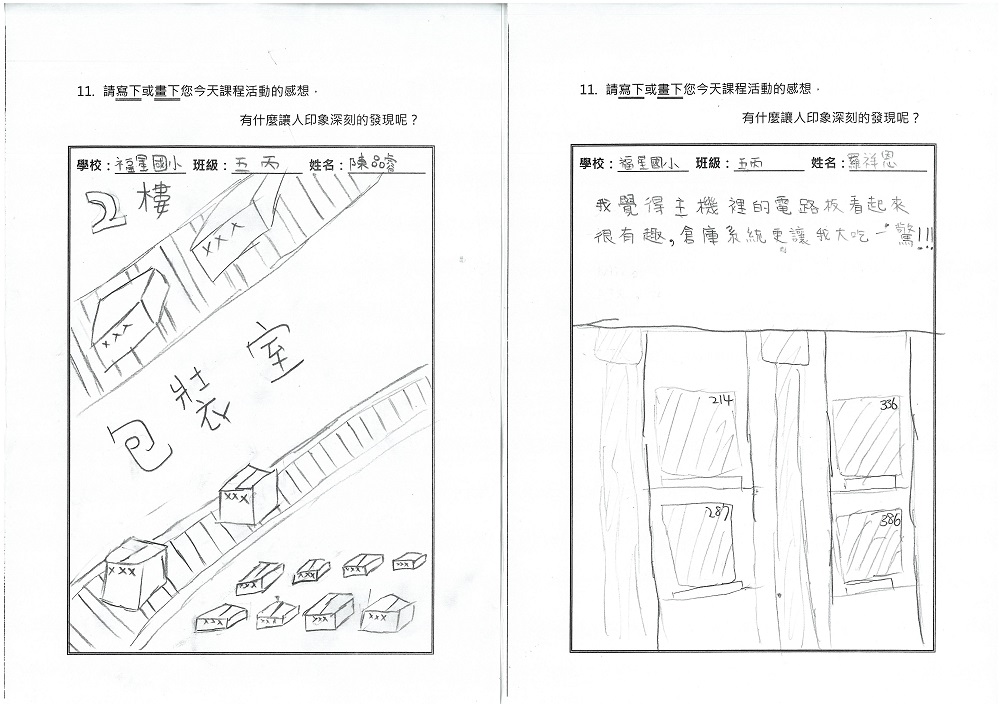 11. 請寫下或畫下您今天課程活動的感想，
有什麼讓人印象深刻的發現呢？
學校：福星國小 班級：五丙 姓名：陳品睿
2樓
xxx
xxx
包裝室
xxx
xxx
xxx xxx xxx xxx
xxx xxx xxx xxx
11. 請寫下或畫下您今天課程活動的感想，
有什麼讓人印象深刻的發現呢？
學校：福星國小 班級：五丙 姓名：羅祥恩
我覺得主機裡的電路板看起來
很有趣,倉庫系統更讓我大吃一驚!!!
214 336
287 386